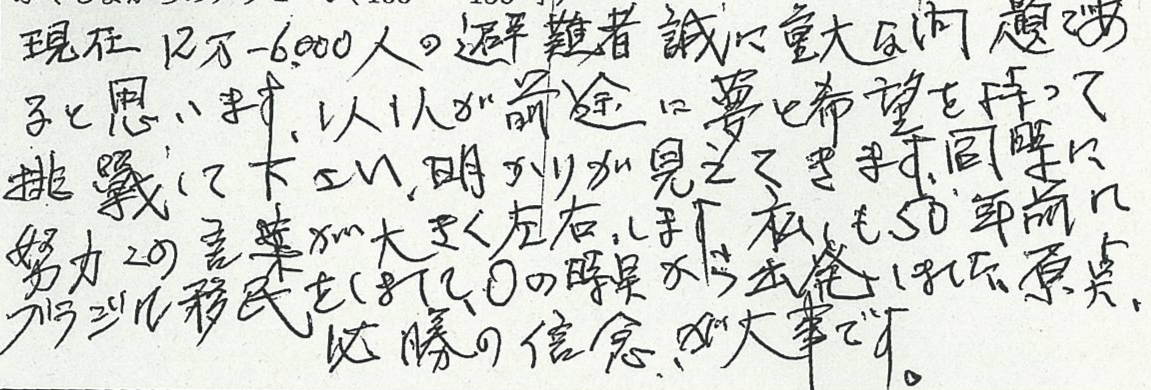 現在12万-6,000人の避難者誠に重大な問題であ
ると思います、1人1人が前途に夢と希望を持って
挑戦して下さい、明かりが見えてきます、同時に
努力この言葉が大きく左右します、私も50年前に
ブラジル移民をしまして、0の時点から出発しました原点、
必勝の信念、が大事です。